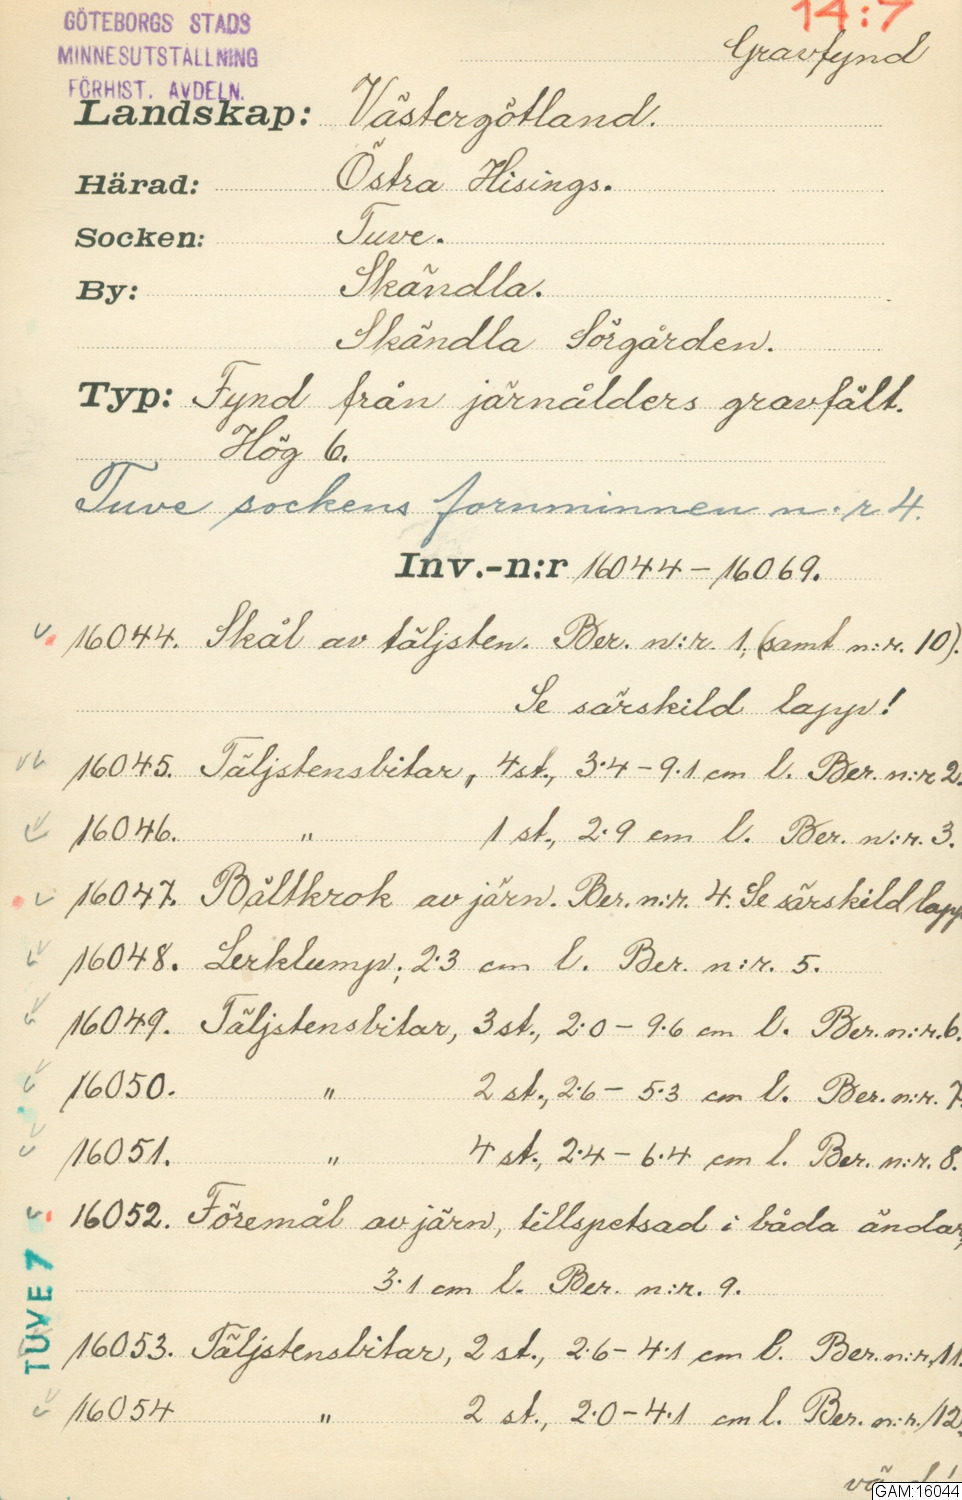 14:7
GÖTEBORGS STADS
MINNESUTSTÄLLNING
FÖRHIST. AVDELN.
Gravfynd
Landskap: Västergötland.
Härad: Östra Hisings.
Socken: Tuve.
By: Skändla.
Skändla Sörgården.
Typ: Fynd från järnålders gravfält.
Hög 6.
Tuve sockens fornminnen n:r 4.
Inv.-n:r 16044-16069.
16044. Skål av täljsten. Ber. n:r. 1, (samt n:r. 10).
Se särskild lapp!
16045. Täljstensbitar, 4 st., 3.4-9.1 cm l. Ber. n:r 2.
16046. " 1 st., 2.9 cm l. Ber. n:r. 3.
16047. Bältkrok av järn. Ber. n:r. 4. Se särskild lapp
16048. Lerklump; 2.3 cm l. Ber. n:r. 5.
16049. Täljstensbitar, 3 st., 2.0-9.6 cm l. Ber. n:r. 6.
16050. " 2 st., 2.6-5.3 cm l. Ber. n:r. 7.
16051. " 4 st., 2.4-6.4 cm l. Ber. n:r. 8.
16052. Föremål av järn, tillspetsad i båda ändar,
3.1 cm l. Ber. n:r. 9.
16053. Täljstensbitar, 2 st., 2.6-4.1 cm l. Ber. n:r. 11.
16054 " 2 st., 2.0-4.1 cm l. Ber. n:r. 12.
TUVE 7
GAM:16044